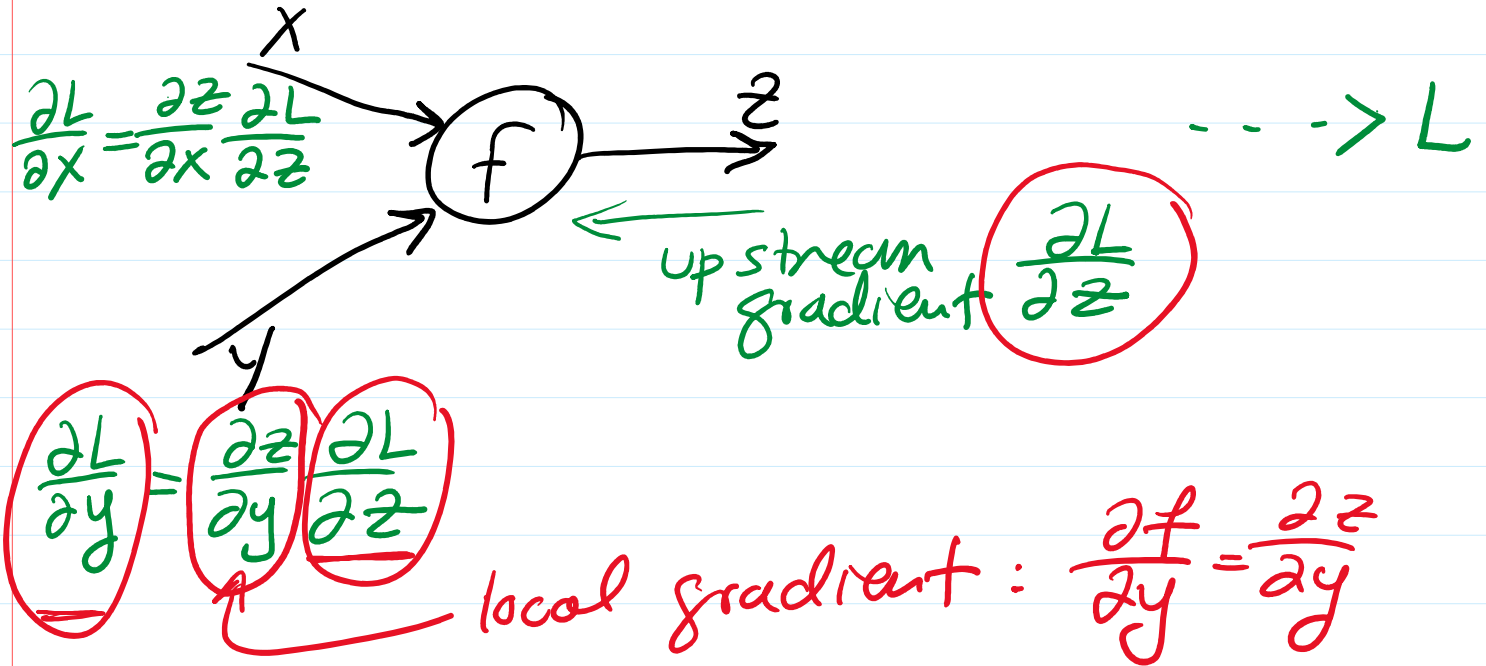 x
∂L/∂x = ∂z/∂x ∂L/∂z
f
z
---> L
upstream
gradient ∂L/∂z
y
∂L/∂y = ∂z/∂y ∂L/∂z
local gradient : ∂f/∂y = ∂z/∂y